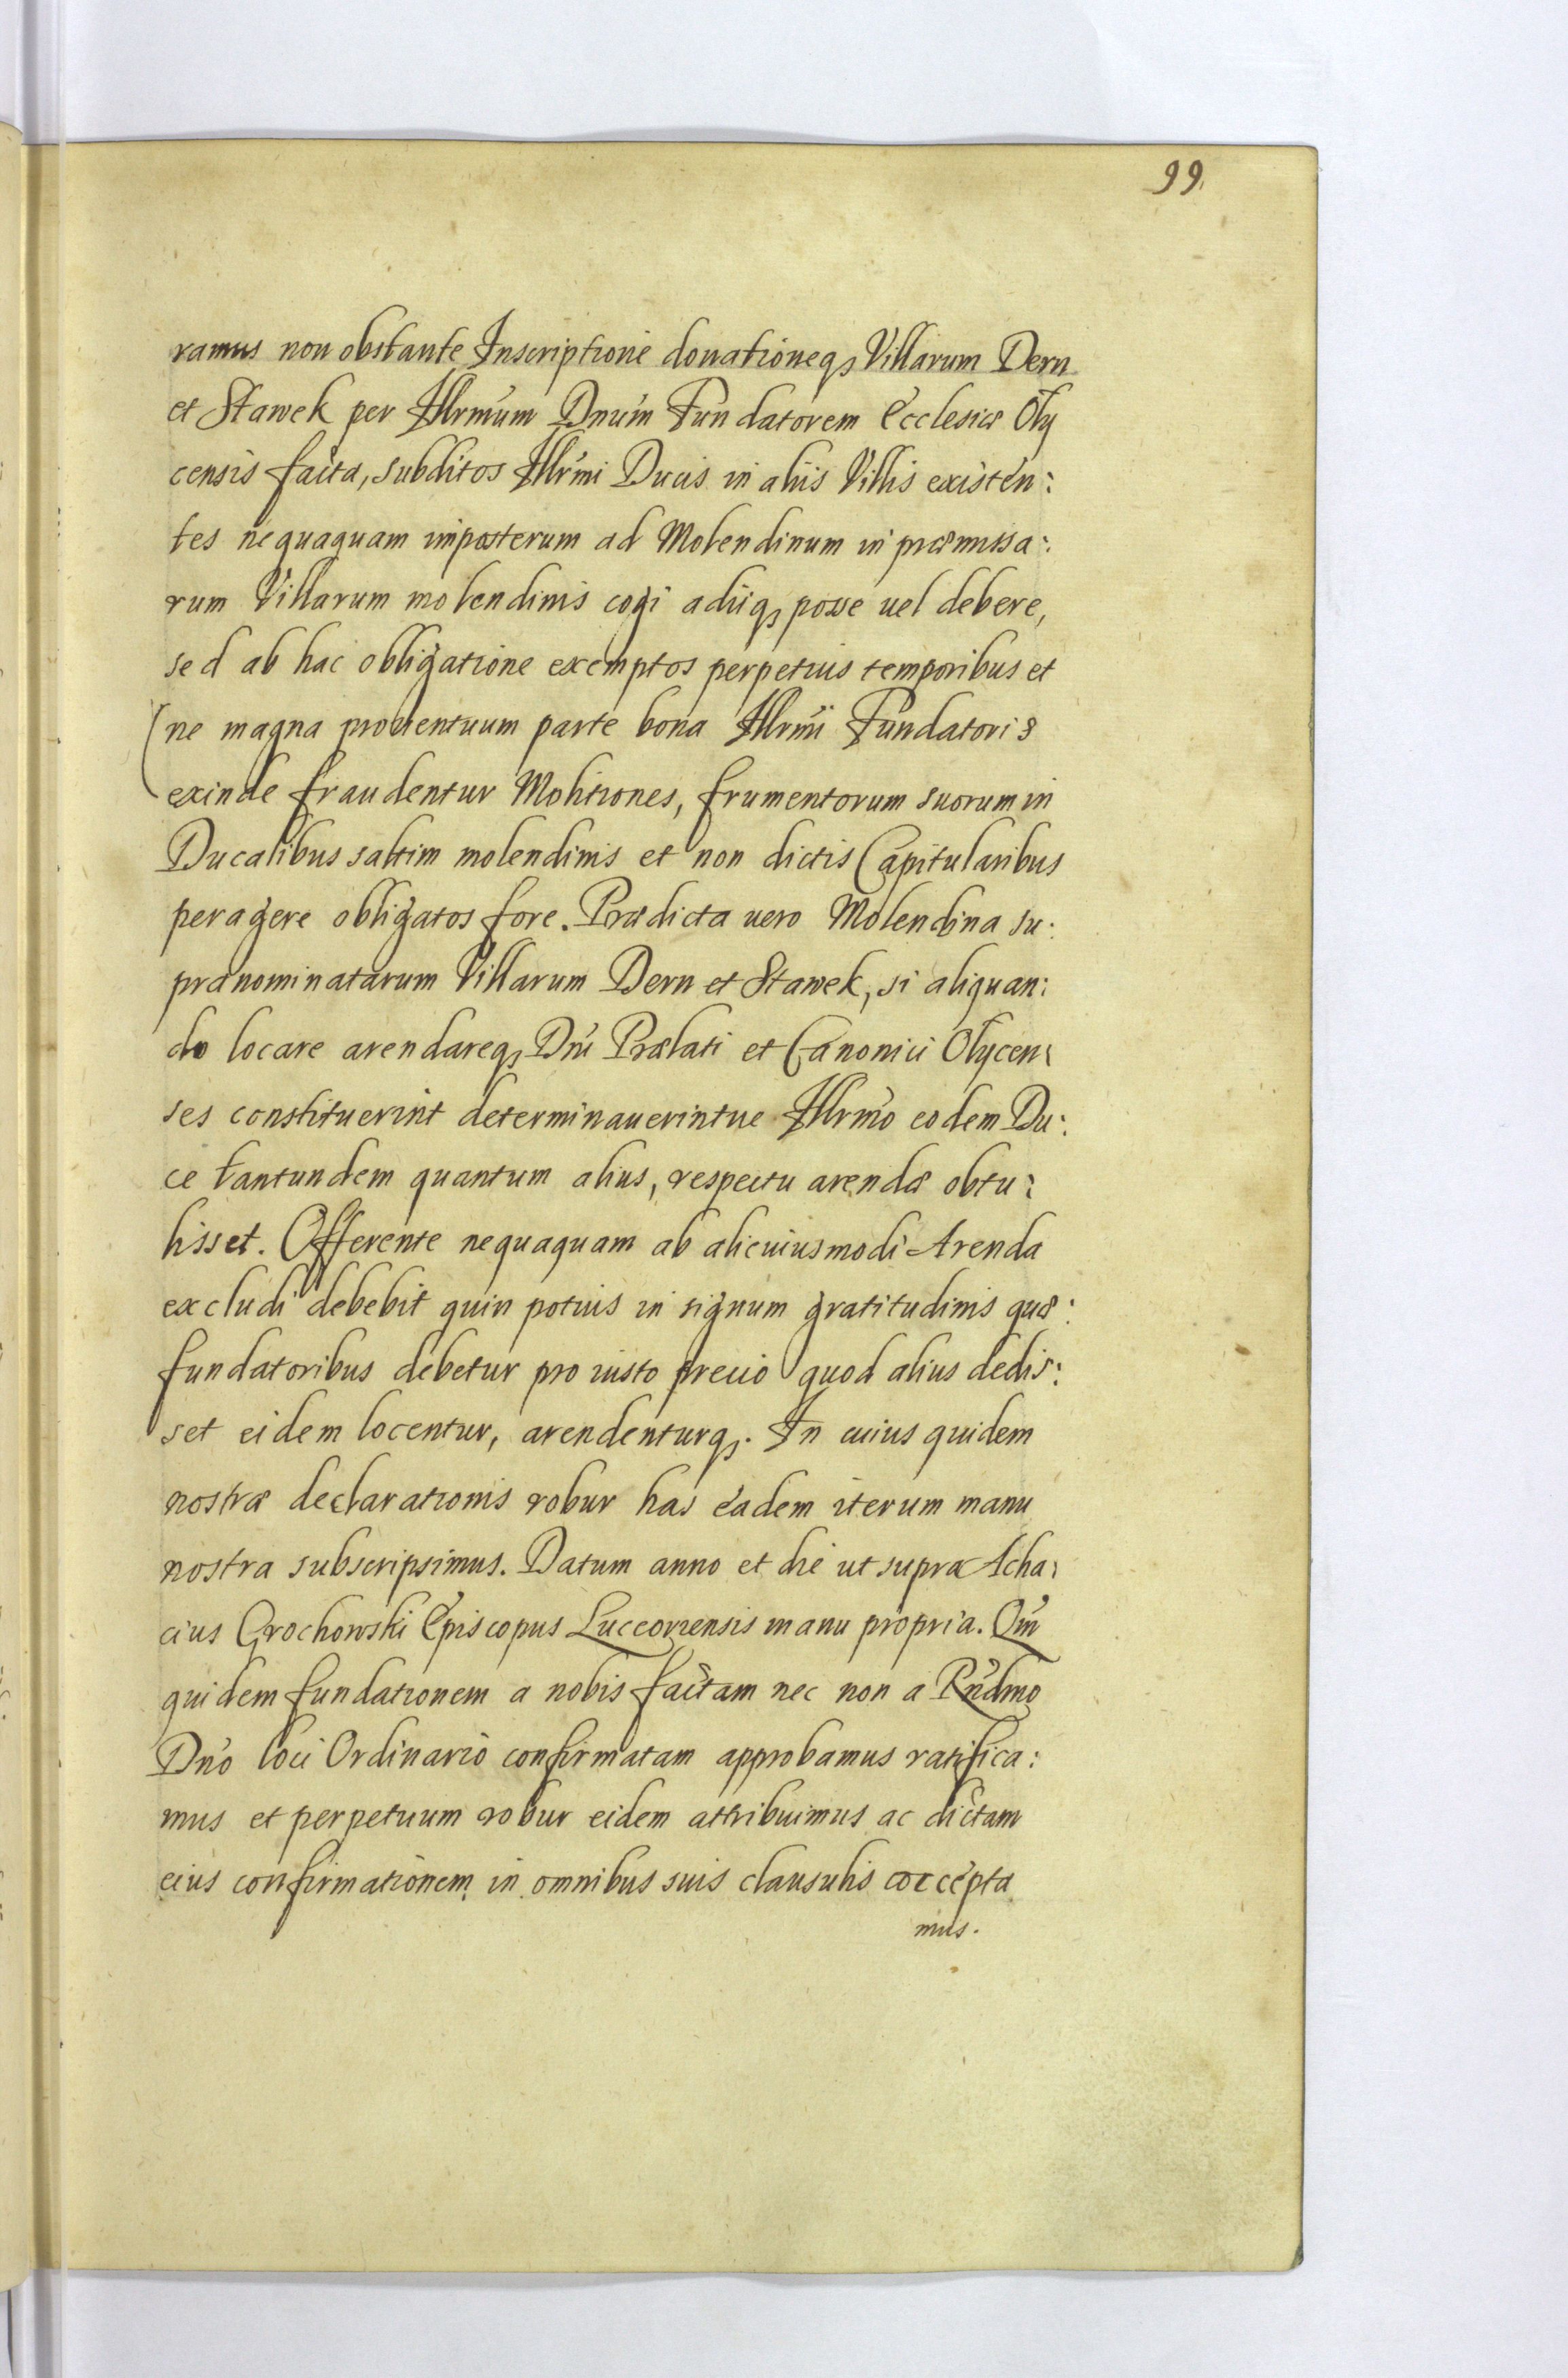 99.
ramus non obstante Inscriptione donationeqȝ Villarum Dern
et Stawek per Illrmum Dnum Fundatorem Ecclesiæ Oly
censis facta, subditos Illrmi Ducis in aliis Villis existen:
tes nequaquam imposterum ad Molendinum in præmissa:
rum Villarum molendinis cogi adiiqȝ posse uel debere,
sed ab hac obligatione exemptos perpetuis temporibus et
(ne magna prouentuum parte bona Illrmi Fundatoris
exinde fraudentur Molitiones, frumentorum suorum in
Ducalibus saltim molendinis et non dictis Capitularibus
peragere obligatos fore. Prædicta uero Molendina su:
pranominatarum Villarum Dern et Stawek, si aliquan:
do locare arendareqȝ Dni Prælati et Canonici Olycen:
ses constituerint determinauerintue Illrmo eodem Du:
ce tantundem quantum alius, respectu arendæ obtu:
lisset. Offerente nequaquam ab alicuiusmodi Arenda
excludi debebit quin potius in signum gratitudinis quæ:
fundatoribus debetur pro iusto precio quod alius dedis:
set eidem locentur, arendenturqȝ. In cuius quidem
nostræ declarationis robur has eadem iterum manu
nostra subscripsimus. Datum anno et die ut supra Acha:
cius Grochowski Episcopus Luceoriensis manu propria. Qm
quidem fundationem a nobis factam nec non a Rndmo
Dno loci Ordinario confirmatam approbamus ratifica:
mus et perpetuum robur eidem attribuimus ac dictam
eius confirmationem in omnibus suis clausulis accepta
mus.